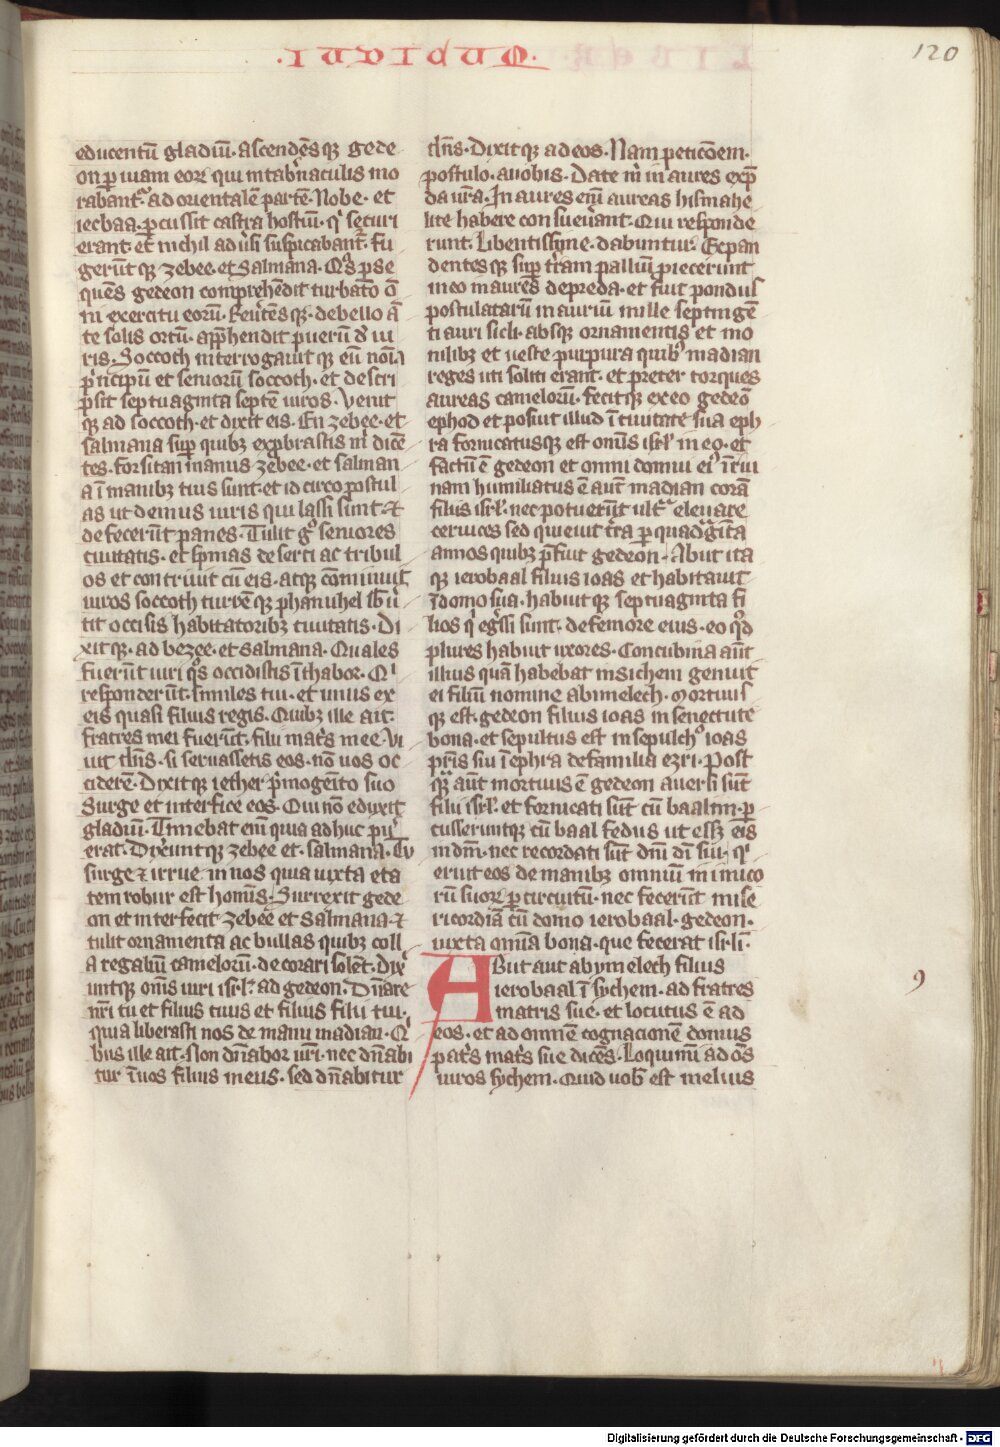 ·IUDICUM·
120
educentū gladiū· ascendēsq; gede
on p̲ uiam eoꝝ qui in tab̾naculis mo
rabant᷑· ad orientalē partē· Nobe· et
iecbaa· p̲cussit castra hostiū· q̾ securi
erant· et nichil adūsi suspicabant᷑· fu
gerūt q; zebee· et Salmana· Qͦs p̲se
quēs gedeon comprehēdit turbato ō
ni exercitu eorū· Reuētes q;· de bello ā
te solis ortū· app̲hendit puerū d̾ ui
ris· Soccoth interrogauit q; eū noīa
p̾ncipū et seniorū soccoth· et descri
psit septuaginta septē uiros· Venit
q; ad soccoth· et dixit eis· En zebee· et
salmana sup̲ quibȝ exprobrastis m̾ dicē
tes· forsitan manus zebee· et salman
a ī manibȝ tuis sunt· et id circo postul
as ut demus uiris qui lassi sunt ⁊
defecerūt panes· Tulit gͦ seniores
ciuitatis· et spinas deserti ac tribul
os et contriuit cū eis· atq; cōminuit
uiros soccoth turrē q; phanuhel sb̾u̾
tit occisis habitatoribȝ ciuitatis· Di
xit q;· ad bezee· et Salmana· Quales
fuerūt uiri qͦs occidistis ī thabor· Qͥ
responderūt· similes tui· et unus ex
eis quasi filius regis· Quibȝ ille ait·
fratres mei fuerūt· filii mat̾s mee· Vi
uit dn̄s· si seruassetis eos· nō uos oc
ciderē· Dixit q; iether p̾mogeīto suo
Surge et interfice eos· Qui nō eduxit
gladiū· Timebat eī quia adhuc pu̾
erat· Dix̾unt q; zebee et· salmana· Tu
surge ⁊ irrue in nos quia iuxta eta
tem robur est homīs· Surrexit gede
on et interfecit zebee et Salmana· ⁊
tulit ornamenta ac bullas quibȝ coll
a regaliū camelorū· decorari solēt· Dix̾
unt q; om̄s uiri isr̄l· ad gedeon· Dn̄are
nr̄i tu et filius tuus et filius filii tui·
quia liberasti nos de manu madian· Qͥ
bus ille ait· Non dn̄abor ur̄i· nec dn̄abi
tur ī uos filius meus· sed dn̄abitur
dn̄s· Dixit q; ad eos· Nam peticōem·
postulo· a uobis· Date m̾ in aures exp̲
da ur̄a· In aures enī aureas hismahe
lite habere consueu̾ant· Qui responde
runt· Libentissyme· dabuntur· Expan
dentes q; sup̲ t̾ram palliū p̲iecerunt
in eo in aurēs de preda· et fuit pondus
postulatarū in auriū mille septingē
ti auri sicli· absq; ornamentis et mo
nilibȝ et ueste purpura quibȝ madian
reges uti soliti erant· et preter torques
aureas camelorū· fecit q; ex eo gedeō
ephod et posuit illud ī ciuitate sua eph
ra fornicatusq; est om̄is isr̄l· in eo· et
factū ē gedeon et omni domui eiꝰ ī rui
nam humiliatus ē aut̄ madian corā
filiis isr̄l· nec potuerūt ult̾ eleuare
ceruices sed quieuit t̾ra p̲ quadͣgīta
annos quibȝ p̾fuit gedeon· Abiit ita
q; ierobaal filius ioas et habitauit
ī domo sua· habuit q; septuaginta fi
lios q̾ eg̾ssi sunt· de femore eius· eo qͦd
plures habuit uxores· Concubina aut̄
illius quā habebat in sichem genuit
ei filiū nomine abimelech· Mortuus
q; est· gedeon filius ioas in senectute
bona· et sepultus est in sepulchͦ ioas
pr̄is sui ī ephra de familia ezri· Post
qͣ aut̄ mortuus ē gedeon auersi sūt
filii isr̄l· et fornicati sūt cū baalim· p̲
cusserunt q; cū baal fedus ut ess; eis
in dm̄· nec recordati sūt dn̄i dī sui· qͥ
eruit eos de manibȝ omniū inimico
rū suoꝝ p̲ circuitū· nec fecerūt mise
ricordiā cū domo ierobaal· gedeon·
iuxta om̄ia bona· que fecerat isr̄li·
ABiit aut abymelech filius
ierobaal ī sychem· ad fratres
matris sue· et locutus ē ad
eos· et ad omnē cognacionē domus
pat̾s mat̾s sue dicēs· Loquimī ad oēs
uiros sychem· Quid uob̾ est melius
9
Digitalisierung gefördert durch die Deutsche Forschungsgemeinschaft - DFG